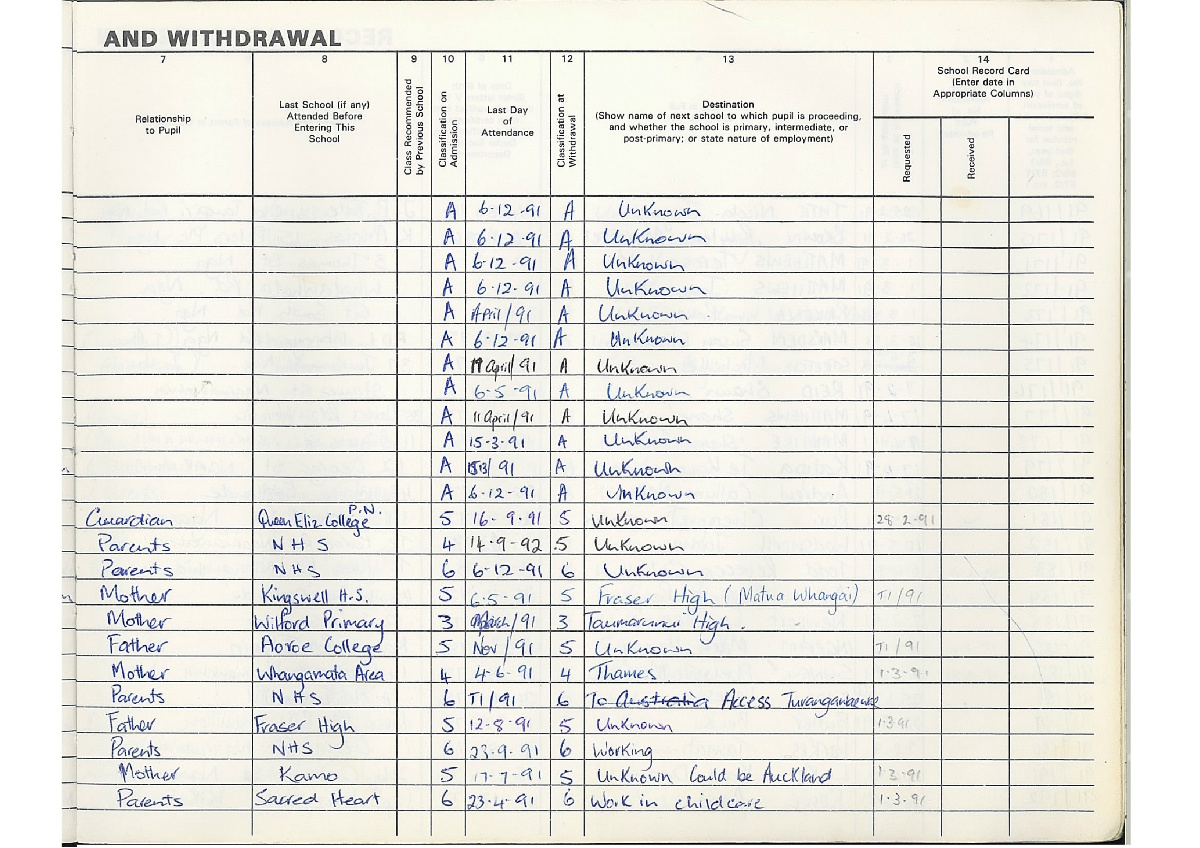 AND WITHDRAWAL
7 8 9 10 11 12 13 14
Relationship to Pupil
Last School (if any) Attended Before Entering This School
Class Recommended by Prevous School
Classification on Admission
Last Day of Attendance
Classification at Withdrawal
Destination
(Show name of next school to which pupil is proceeding, and whether the school is primary, intermediate, or post-primary; or state nature of employment)
School Record Card (Enter date in Appropriate Columns)
Requested
Received
A 6-12-91 A Unknown
A 6-12-91 A Unknown
A 6-12-91 A Unknown
A 6-12-91 A Unknown
A April/91 A Unknown
A 6-12-91 A Unknown
A April/91 A Unknown
A 6-5-91 A Unknown
A 11 April/91 A Unknown
A 15-3-91 A Unknown
A 91 A Unknown
A 6-12-91 A Unknown
Guardian Queen Eliz College P.N. 5 16-9-91 5 Unknown 28 2-91
Parents NHS 4 14-9-92 5 Unknown
Parents NHS 6 6-12-91 6 Unknown
Mother Kingswell H.S. 5 6-5-91 5 Fraser High (Matua Whangai) T1/91
Mother Wilford Primary 3 /91 3 Taumarunui High.
Father Aoroe College 5 Nov/91 5 Unknown T1/91
Mother Whangamata Area 4 4-6-91 4 Thames 1-3-91
Parents NHS 6 T1/91 6 To Australia Access Turangawaewae
Father Fraser High 5 12-8-91 5 Unknown 1-3 91
Parents NHS 6 23-9-91 6 Working
Mother Kamo 5 17-7-91 5 Unknown Could be Auckland 1-3-91
Parents Sacred Heart 6 23-4-91 6 Work in childcare 1-3-91